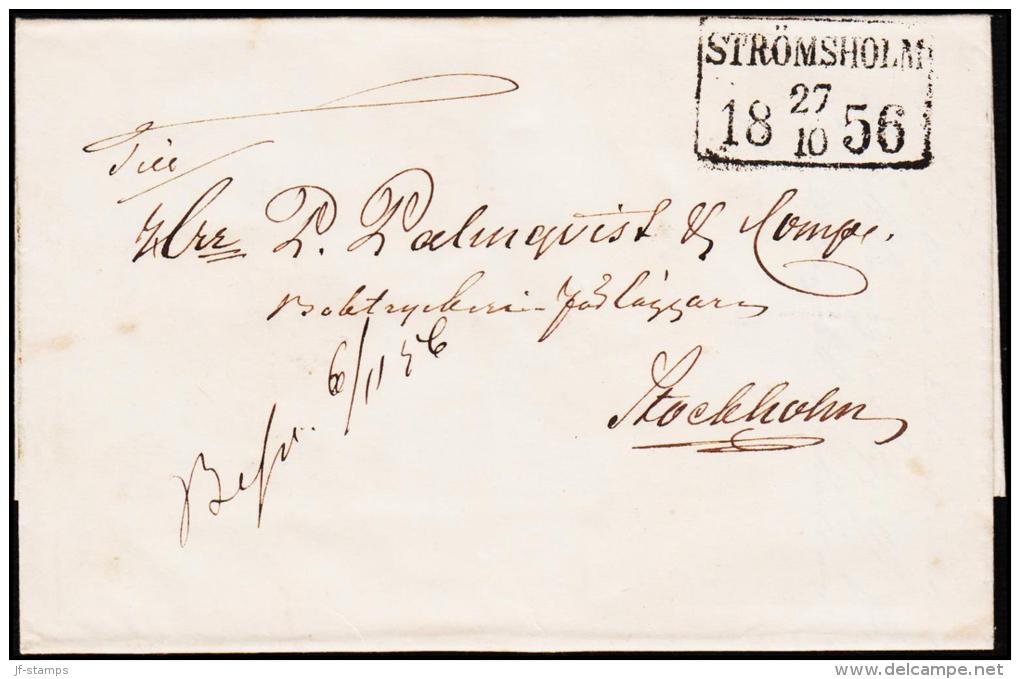 STRÖMSHOLM
18 27/10 56
Till
Hrr P. Palmqvist & Comp.
Boktryckeri-Förläggare
Stockholm
Besv. 6/11 56
jf-stamps
www.delcampe.net